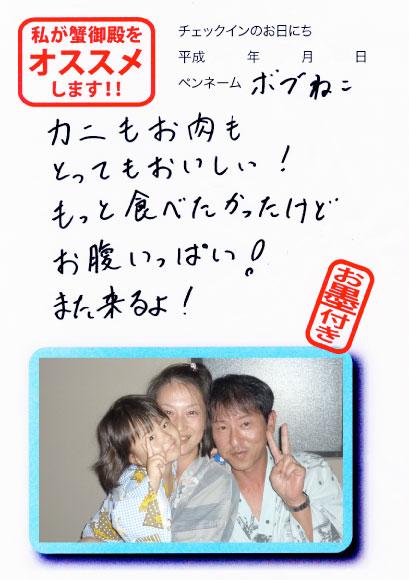 私が蟹御殿を
オススメ
します!!
チェックインのお日にち
平成　年　月　日
ペンネーム ボブねこ
カニもお肉も
とってもおいしい!
もっと食べたかったけど
お腹いっぱい!
また来るよ!
お墨付き